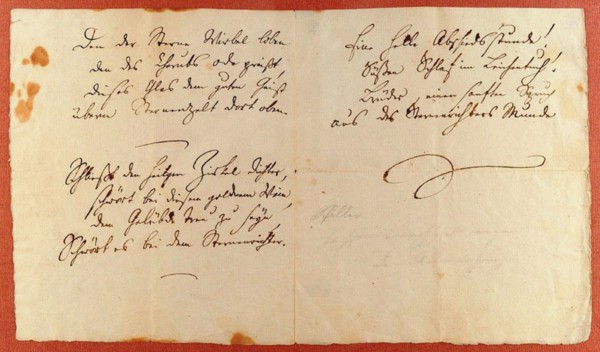 Den der Sterne Wirbel loben
den des Cherubs ode preißt,
dieses Glas dem guten Geist
überm Sternenzelt dort oben.
Schließt den heilgen Zirkel dichter,
schwört bei diesem goldnem Wein
dem Gelübde treu zu seyn
Schwört es bei dem Sternenrichter.
Eine helle Abschidsstunde!
Süßen Schlaf im Leichentuch!
Brüder einen sanften Spruch
aus des Sternenrichters Munde
Schiller